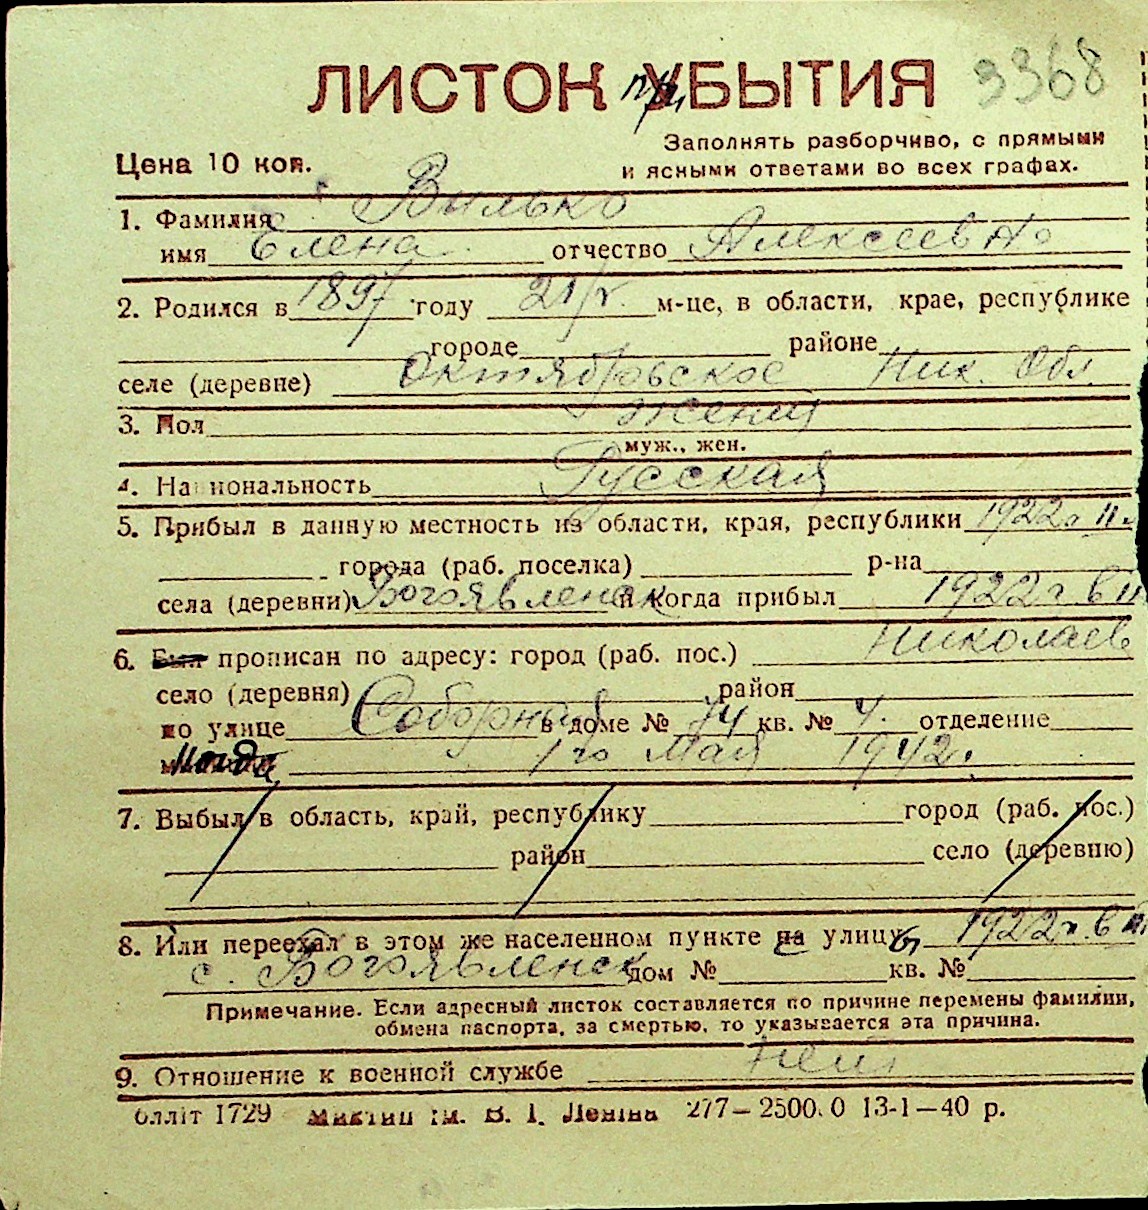 ЛИСТОК при УБЫТИЯ 3368
Заполнять разборчиво, с прямыми
Цена 10 коп. и ясными ответами во всех графах.
1. Фамилия Вилько
имя Елена отчество Алексеевна
2. Родился в 1897 году 21/V м-це, в области, крае, республике
городе районе
селе (деревне) Октябрьское Ник. Обл.
3. Пол женщ
муж., жен.
4. Национальность Русская
5. Прибыл в данную местность из области, края, республики 1922г
города (раб. поселка) р-на
села (деревни) Богоявленск и когда прибыл 1922г в
6. Был прописан по адресу: город (раб. пос.) Николаев
село (деревня) район
по улице Соборная в доме № 74 кв. № 4. отделение
когда 1го Мая 1942г.
7. Выбыл в область, край, республику город (раб. пос.)
район село (деревню)
8. Или переехал в этом же населенном пункте на улицу 1922г. в
с. Богоявленск дом № кв. №
Примечание. Если адресный листок составляется по причине перемены фамилии,
обмена паспорта, за смертью, то указывается эта причина.
9. Отношение к военной службе нет
блліт 1729 ім. В. І. Леніна 277—2500.0 13-1—40 р.